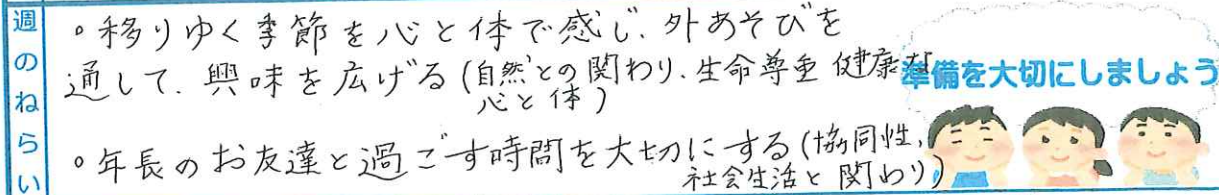 週のねらい
。移りゆく季節を心と体で感じ、外あそびを
通して、興味を広げる(自然との関わり、生命尊重 健康な
心と体)
。年長のお友達と過ごす時間を大切にする(協同性,
社会生活と関わり)
準備を大切にしましょう